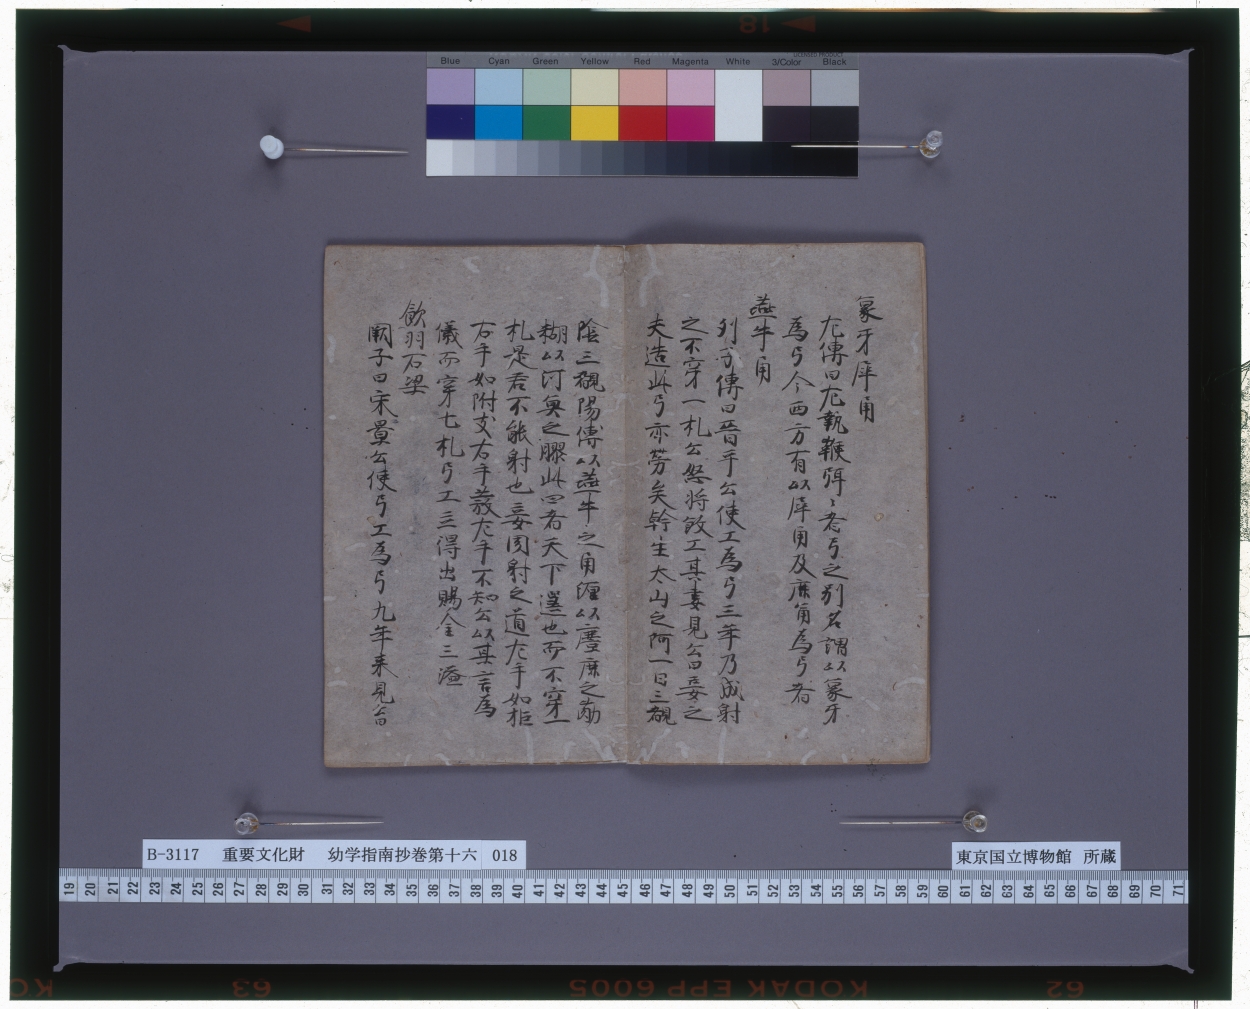 象牙犀角
左傳曰左執鞭弭〻者弓之別名謂以象牙
為弓今西方有以犀角及麋角為弓者
燕牛角
列女傳曰晉平公使工為弓三年乃成射
之不穿一札公怒將殺工其妻見公曰妾之
夫造此弓亦勞矣幹生太山之阿一日三覩
陰三覩陽傅以燕牛之角纏以麋之筋
糊以河魚之膠此四者天下選也而不穿一
札是君不能射也妾聞射之道左手如拒
右手如附支右手發左手不知公以其言為
儀而穿七札弓工三得出賜金三溢
飲羽石梁
闞子曰宋景公使弓工為弓九年来見公曰
Blue Cyan Green Yellow Red Magenta White 3/Color Black
B-3117 重要文化財 幼学指南抄巻第十六 018
東京国立博物館 所蔵
19 20 21 22 23 24 25 26 27 28 29 30 31 32 33 34 35 36 37 38 39 40 41 42 43 44 45 46 47 48 49 50 51 52 53 54 55 56 57 58 59 60 61 62 63 64 65 66 67 68 69 70 71
18
63
KODAK EPP 6005
62